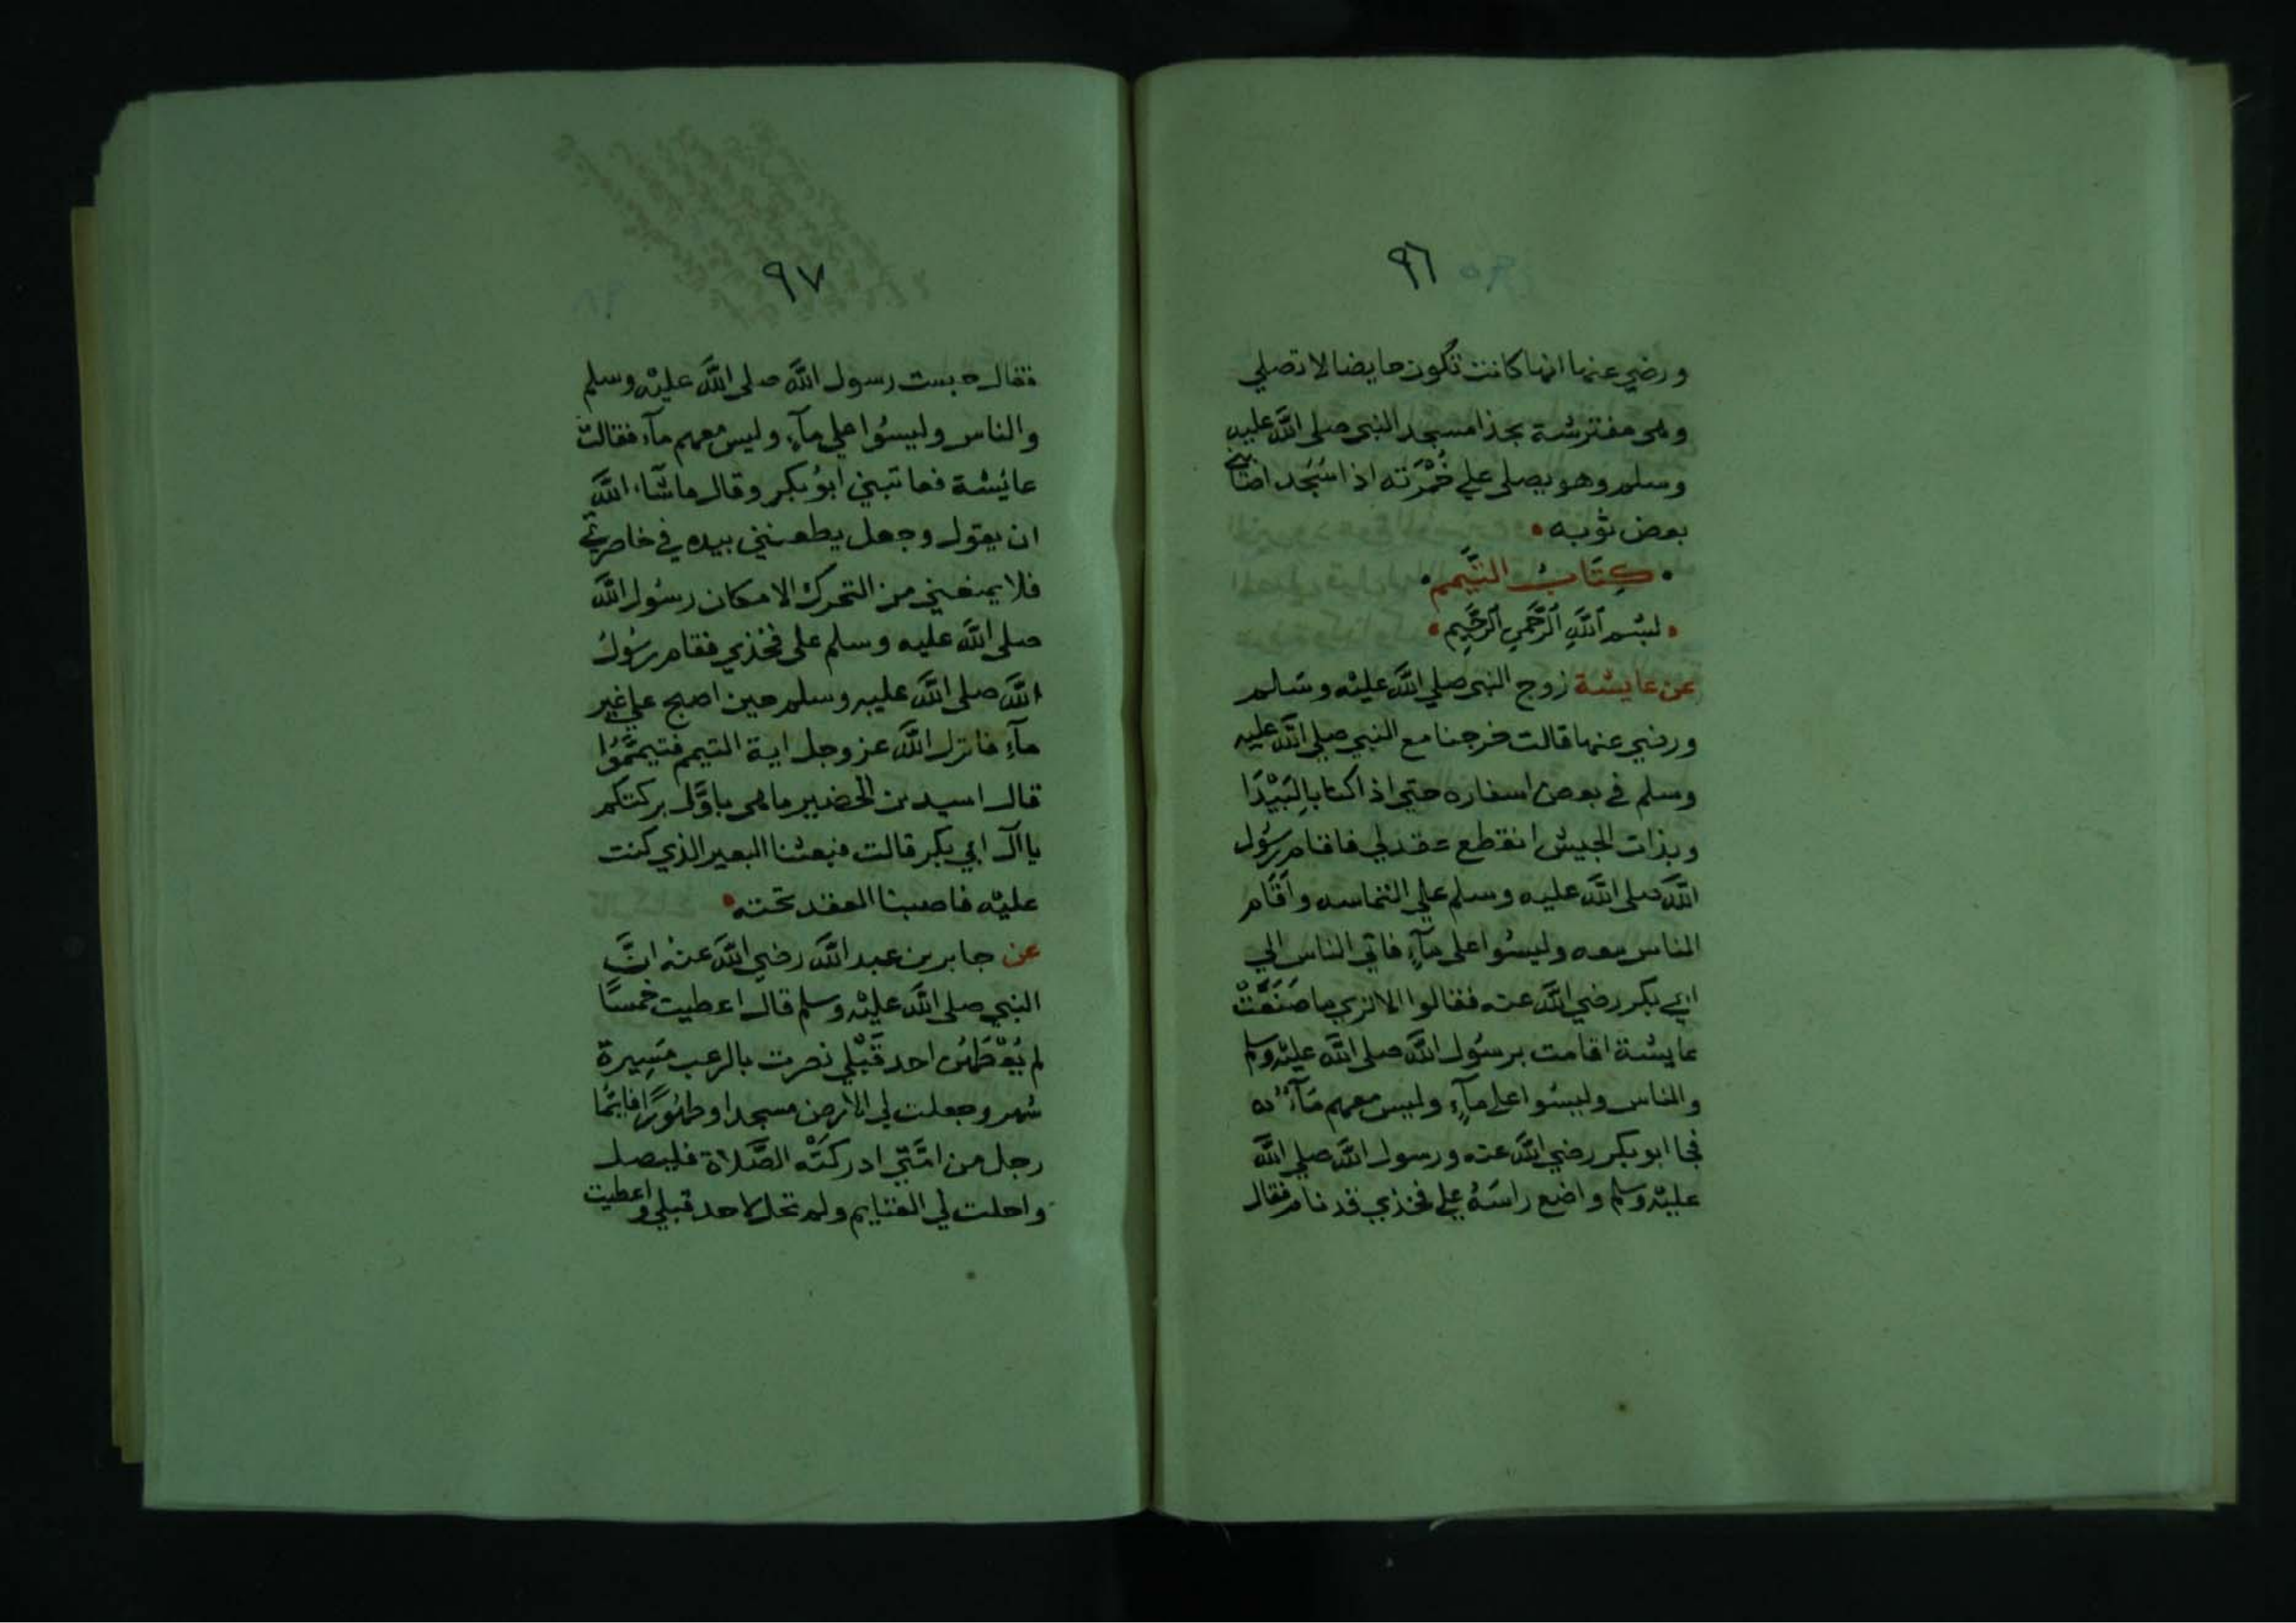 ٩٦
ورضي عنها انها كانت تكون حايضا لا تصلي
وهى مفترشة بحذا مسجد النبي صلى اللَّه عليه
وسلم وهو يصلى علي خُمْرَته اذا سَجَد اصَابَني
بعض ثوبه
كِتَابُ التَّيمم
بسْم اللَّهِ الرَّحْمنِ الرَّحِيمِ
عن عايشة زوج النبي صلي اللَّه عليْه وسَلم
ورضي عنها قالت خرجنا مع النبي صلي اللَّه عليه
وسلم في بعض اسفاره حتي اذا كنا بالبَيْدَا
وبذات الجيش انقطع عقد لي فاقام رسُول
اللَّه صلى اللَّه عليه وسلم علي التماسه واقَام
الناس معه وليسُوا على مآءٍ فاتي الناس الي
ابي بكر رضي اللَّه عنه فقالوا الا تري ما صَنَعَتْ
عايشة اقامت برسُول اللَّه صلى اللَّه عليْه وسلم
والناس وليسُوا على مآءٍ وليس معهم مَآءٌ
فجا ابو بكر رضي اللَّه عنه ورسول اللَّه صلي اللَّه
عليْه وسلم واضع راسَهُ علي فخذي قد نام فقال
٩٧
فقال حبست رسول اللَّه صلى اللَّه عليْه وسلم
والناس وليسُوا علي مآءٍ وليس معهم مآء فقالت
عائشة فعاتبني ابوُ بكر وقال ما شآء اللَّه
ان يقول وجعل يطعنني بيده في خاصرتي
فلا يمنعني من التحرك الا مكان رسُول اللَّه
صلى اللَّه عليه وسلم على فخذي فقام رسُولُ
اللَّه صلى اللَّه عليه وسلم حين اصبح علي غير
مآءٍ فانزل اللَّه عز وجل اية التيمم فتيممَّوُا
قال اسيد بن الحضير ما هى باوَّل بركتكم
يا آل ابي بكر قالت فبعثنا البعير الذي كنت
عليْه فاصبنا العقد تحته
عن جابر بن عبد اللَّه رضي اللَّه عنْه انَّ
النبي صلى اللَّه عليْه وسلم قال اعطيت خمسًا
لم يُعْطَهُن احد قَبْلي نصرت بالرعب مَسِيرة
شهر وجعلت لي الارض مسجدا وطهُورًا فايمَّا
رجل من امَّتي ادركَتْه الصَّلاة فليصل
واحلت لي الغنايم ولم تحل لاحد قبلي واعطيت